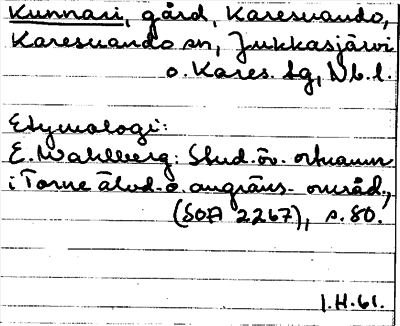 Kunnari, gård, Karesuando,
Karesuando sn, Jukkasjärvi
o. Kares. tg, Nb. l.
Etymologi:
E. Wahlberg: Stud. öv. ortnamn
i Torne älvd. o. angräns. områd.,
(SOA 2267), s. 80.
1.H.61.